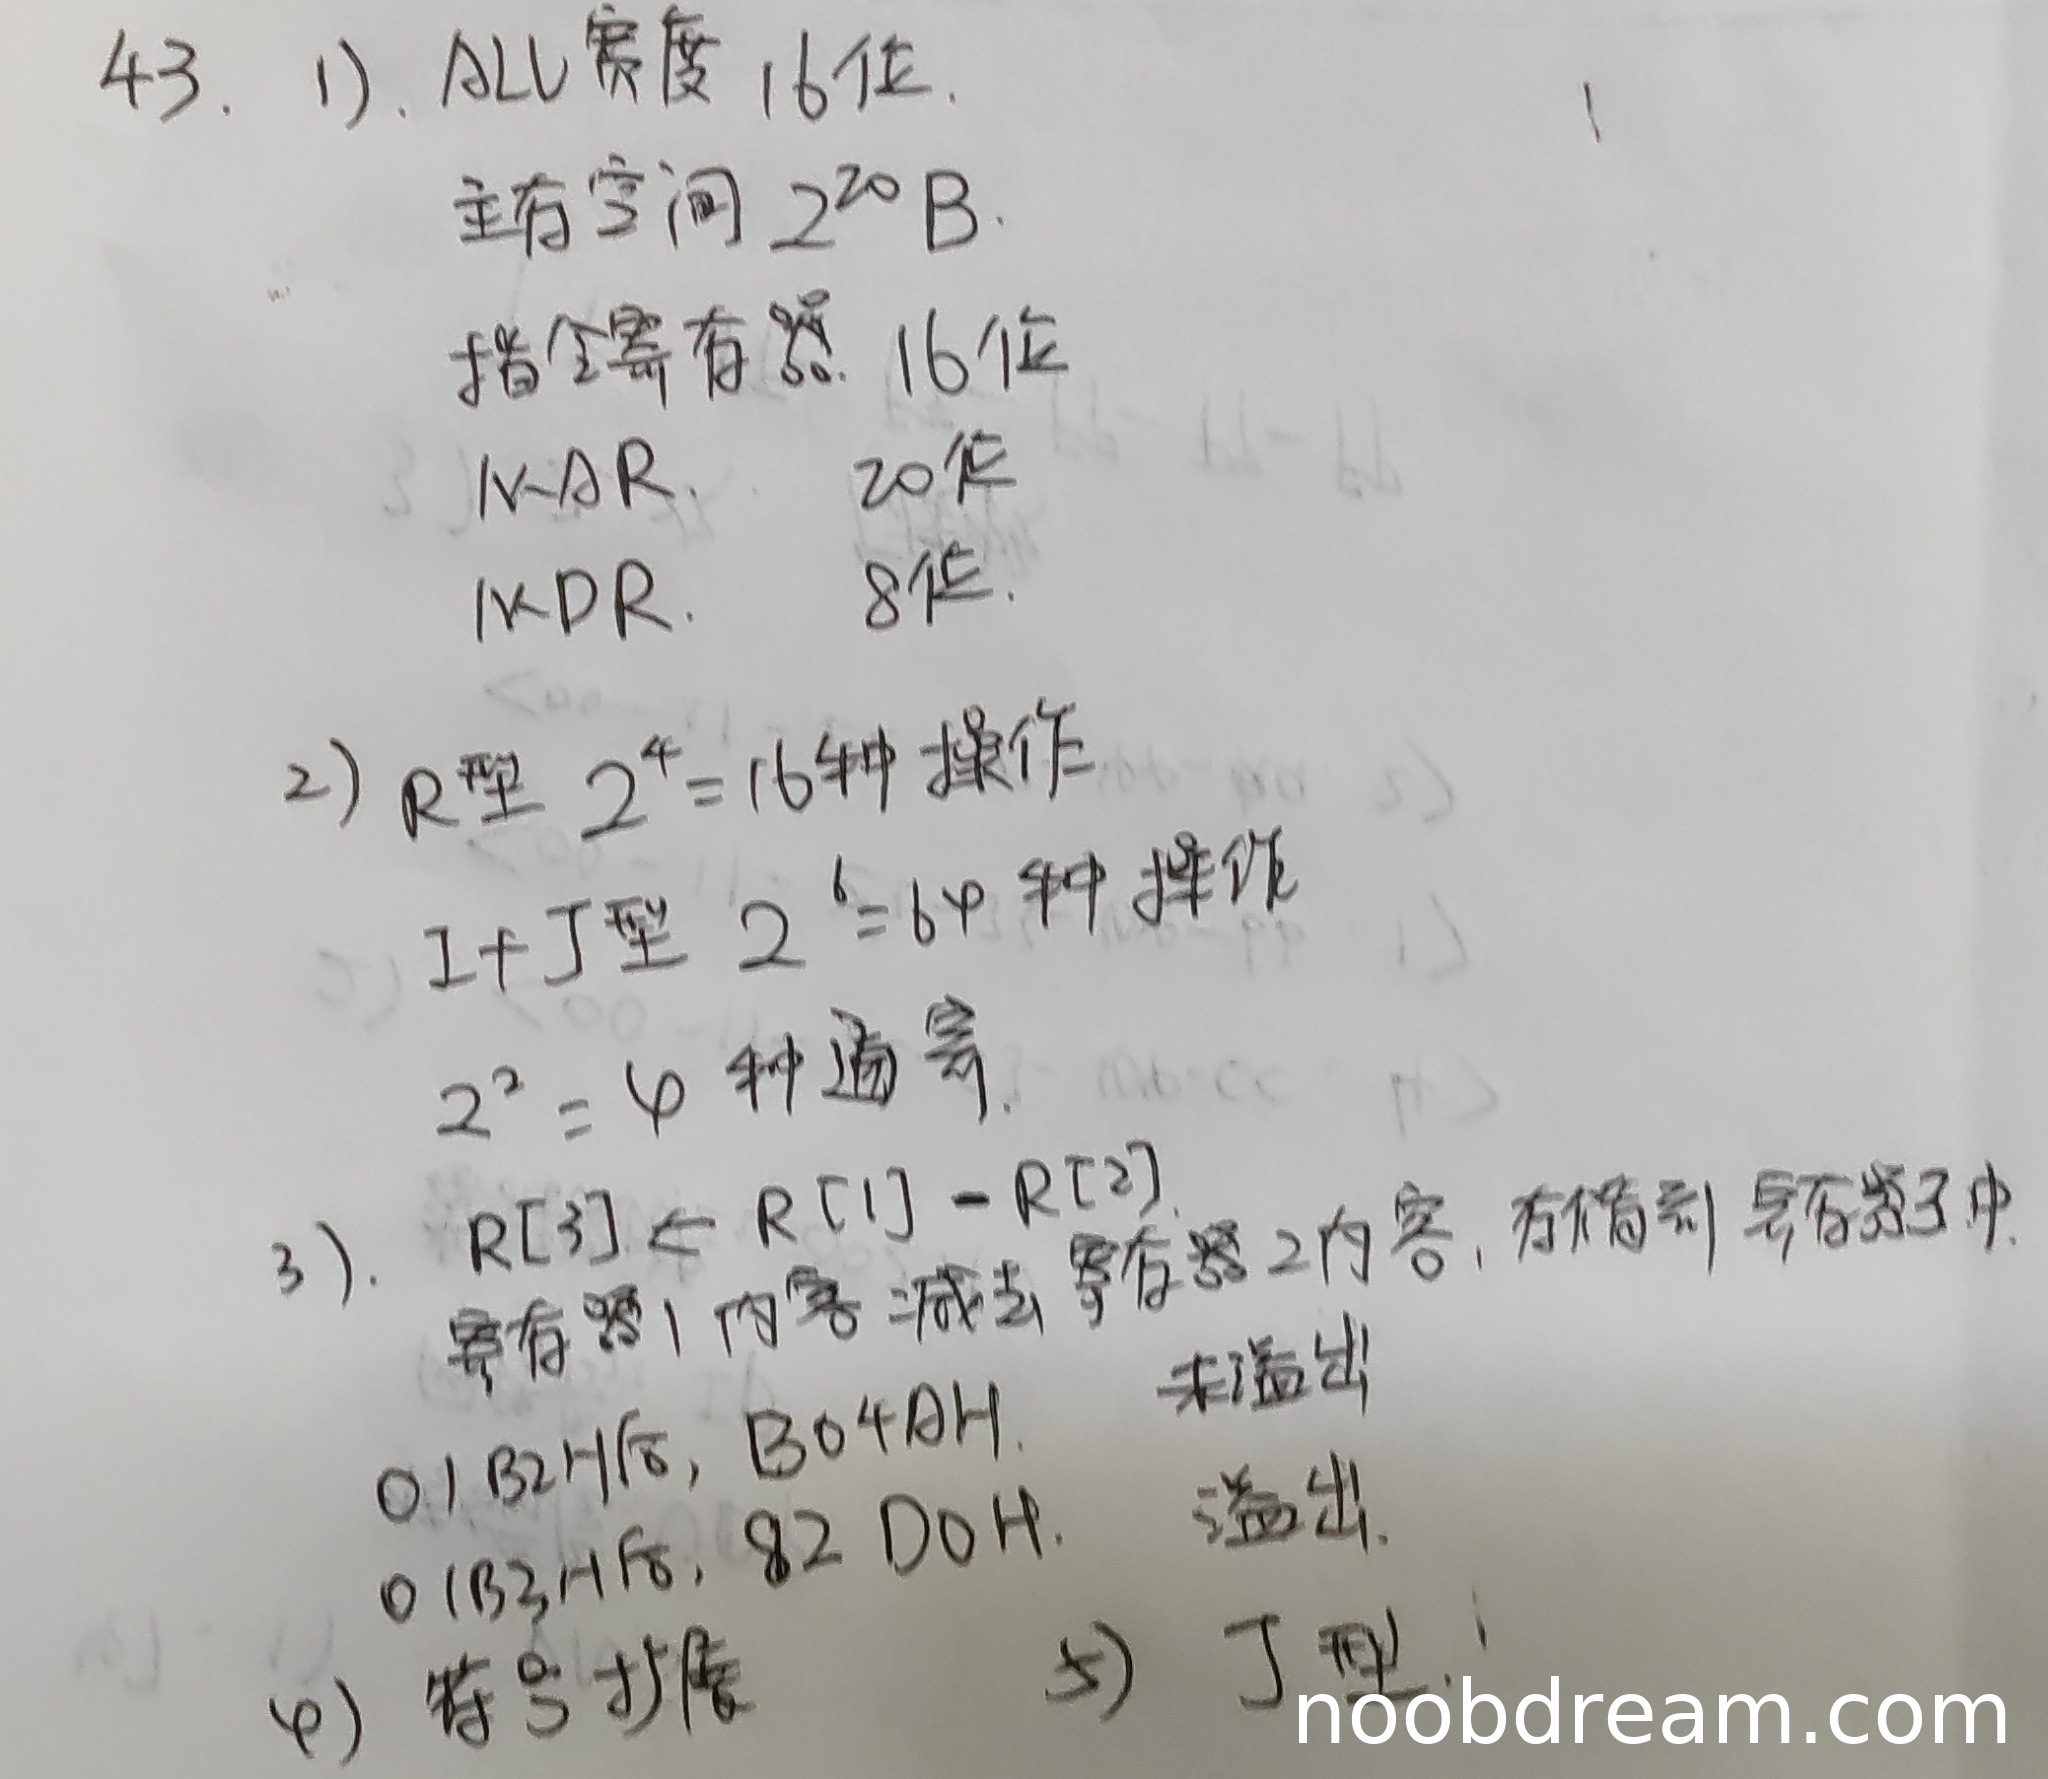 43. 1). ALU宽度 16位.
主存空间 2²⁰B.
指令寄存器. 16位
MAR. 20位
MDR. 8位.
2) R型 2⁴=16种操作
I+J型 2⁶=64种操作
2²=4种通寄.
3). R[3]←R[1]-R[2].
寄存器1内容减去寄存器2内容,存储到寄存器3中.
01B2H后, B04AH. 未溢出
01B3H后, 82D0H. 溢出.
4) 符号扩展 5) J型.
noobdream.com